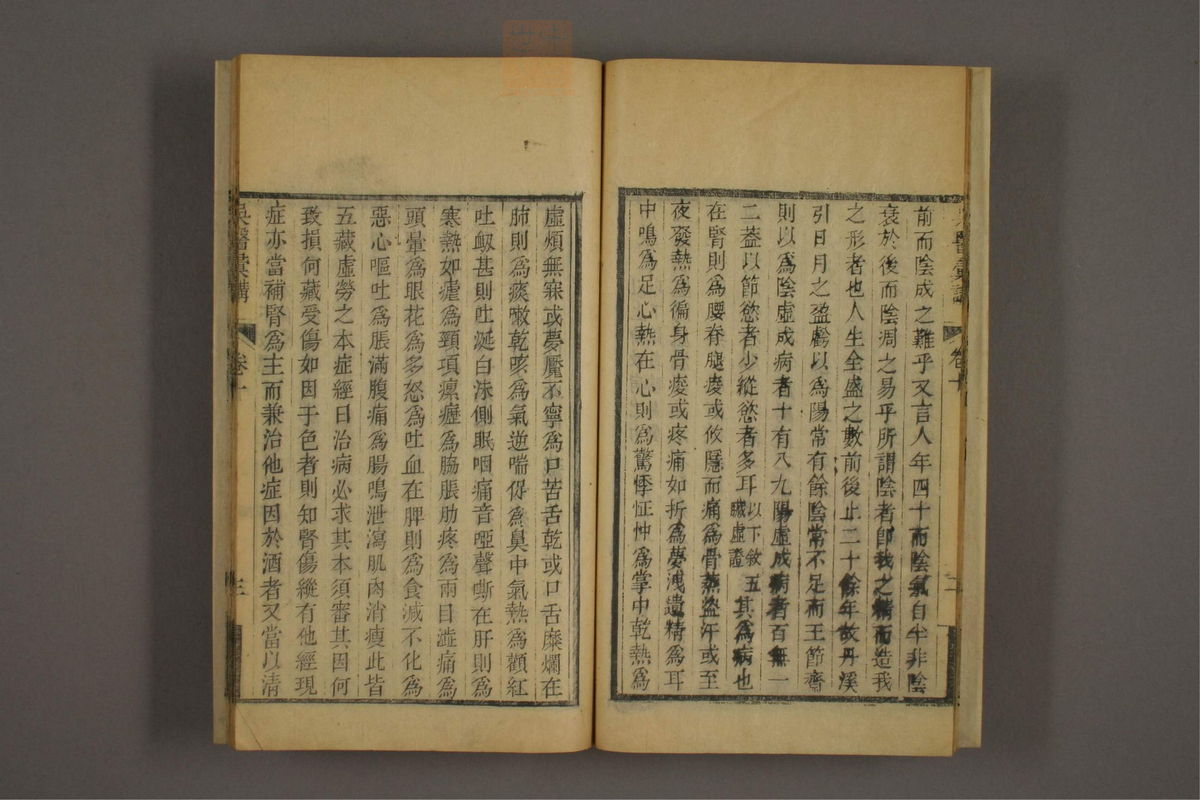 前而陰成之難乎又言人年四十而陰氣自半非陰
衰於後而陰凋之易乎所謂陰者卽我之精而造我
之形者也人生全盛之數前後止二十餘年故丹溪
引日月之盈虧以爲陽常有餘陰常不足而王節齋
則以爲陰虛成病者十有八九陽虛成病者百無一
二葢以節慾者少縱慾者多耳以下敘五臟虛證其爲病也
在腎則爲腰脊腿痠或攸隱而痛爲骨蒸盜汗或至
夜發熱爲徧身骨痠或疼痛如折爲夢洩遺精爲耳
中鳴爲足心熱在心則爲驚悸怔忡爲掌中乾熱爲
吳醫彚講
卷十
二
虛煩無寐或夢魘不寧爲口苦舌乾或口舌糜爛在
肺則爲痰嗽乾咳爲氣逆喘促爲鼻中氣熱爲顴紅
吐衂甚則吐涎白沫側眠咽痛音啞聲嘶在肝則爲
寒熱如瘧爲頸項瘰癧爲脇脹肋疼爲兩目澁痛爲
頭暈爲眼花爲多怒爲吐血在脾則爲食減不化爲
惡心嘔吐爲脹滿腹痛爲腸鳴泄瀉肌肉消瘦此皆
五藏虛勞之本症經曰治病必求其本須審其因何
致損何藏受傷如因于色者則知腎傷縱有他經現
症亦當補腎爲主而兼治他症因於酒者又當以清
吳醫彚講
卷十
三